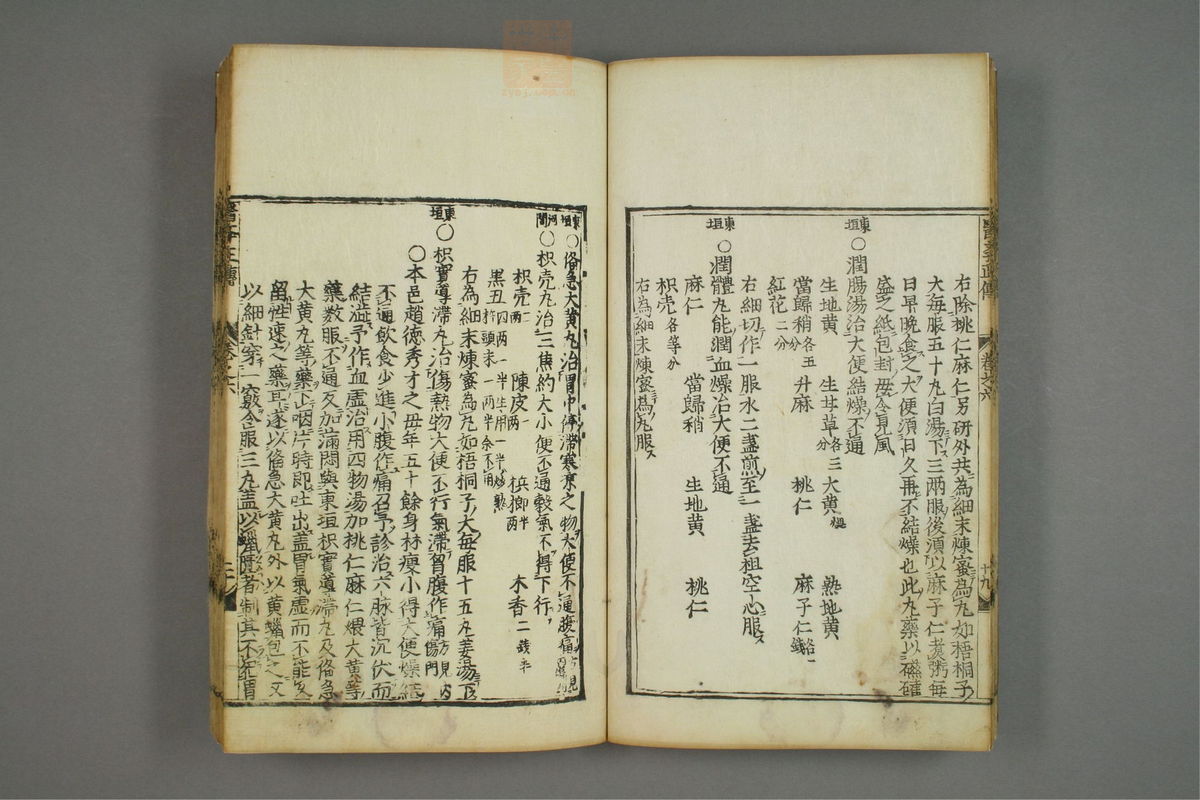 醫學正傳
卷之六
十九
右除桃仁麻仁另研外共為細末煉蜜為丸如梧桐子
大每服五十丸白湯下三兩服後須以麻子仁煮粥每
日早晚食之大便須日久再不結燥也此丸藥以磁確
盛之紙包封毋令見風
東垣
○潤腸湯治大便結燥不通
生地黄 生甘草各三分 大黄煨 熟地黄
當歸稍各五分 升麻 桃仁 麻子仁各一錢
紅花二分
右細切作一服水二盞煎至一盞去柤空心服
東垣
○潤體丸能潤血燥治大便不通
麻仁 當歸稍 生地黄 桃仁
枳壳各等分
右為細末煉蜜為丸服
東垣
○俻急大黄丸治胃中停滯寒凉之物大便不通腹痛方見
河間
○枳壳丸治三焦約大小便不通穀氣不得下行
枳壳二兩 陳皮一兩 梹榔半兩 木香二錢半
黒丑四兩一半生用一半炒熟杵頭末一兩半余不用
右為細末煉蜜為丸如梧桐子大每服十五丸姜湯下
東垣
○枳實導滯丸治傷熱物大便不行氣滯胷腹作痛方見内傷門
○本邑趙德秀才之母年五十餘身材瘦小得大便燥結
不通飲食少進小腹作痛召予診治六脉皆沉伏而
結澁予作血虚治用四物湯加桃仁麻仁煨大黄等
藥數服不通反加滿悶與東垣枳實導滯丸及俻急
大黄丸等藥下咽片時即吐出盖胃氣虚而不能久
留性速之藥耳遂以俻急大黄丸外以黄蠟包之又
以細針穿一竅令服三丸盖以蠟匱者制其不犯胃
醫學正傳
卷之六
二十